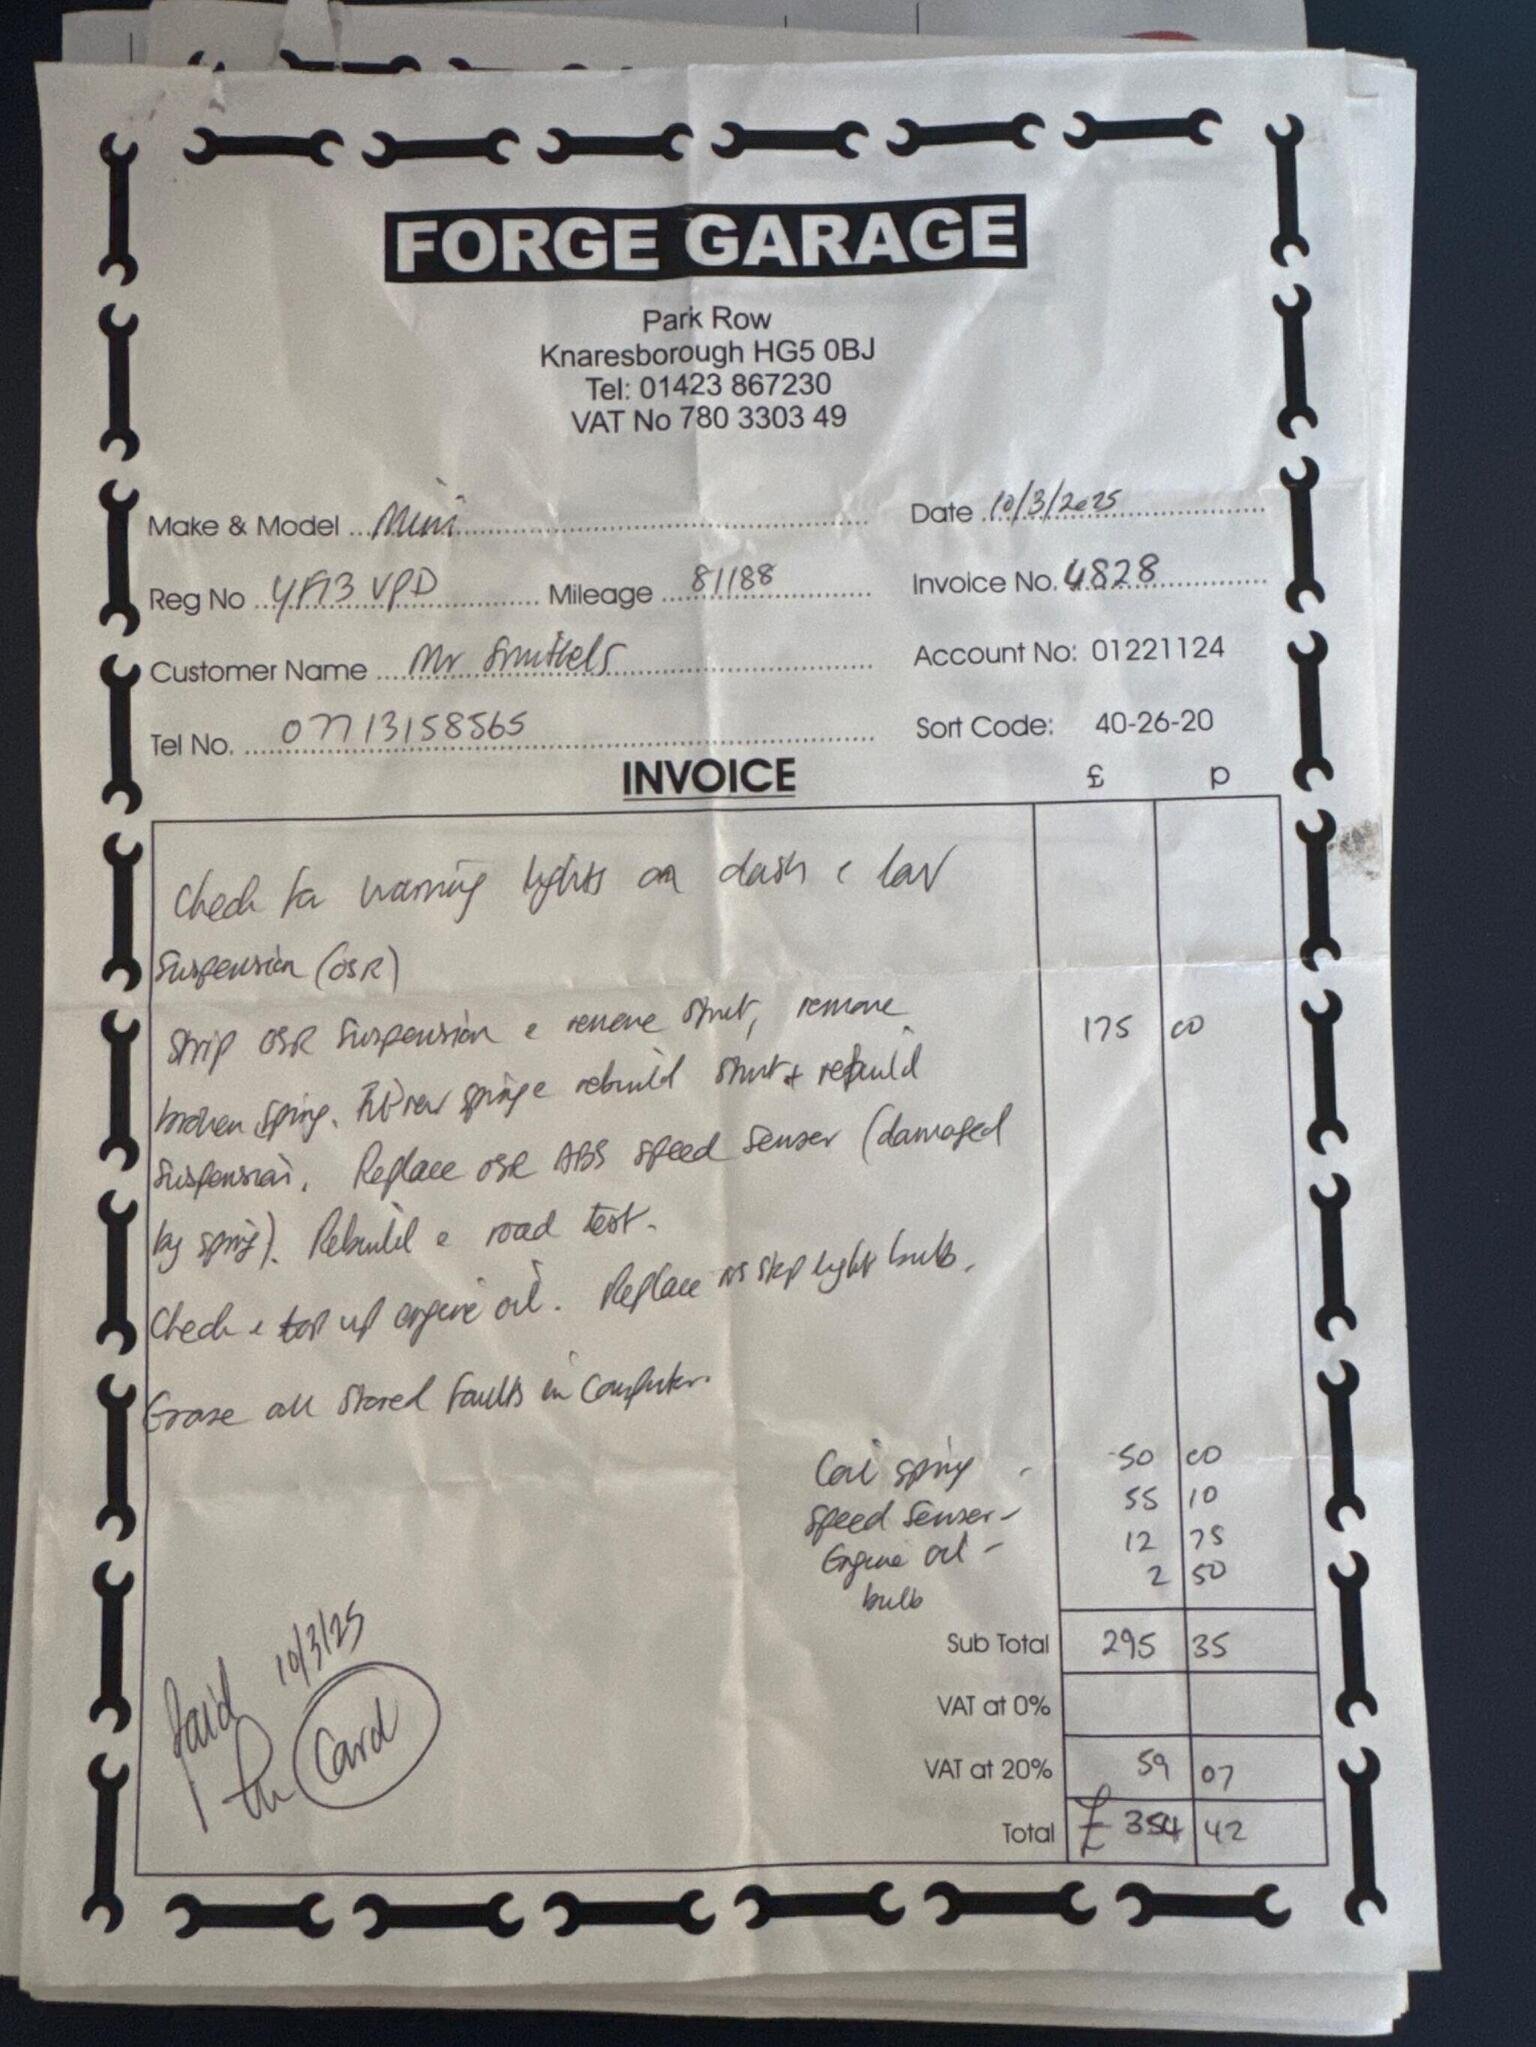 FORGE GARAGE
Park Row
Knaresborough HG5 0BJ
Tel: 01423 867230
VAT No 780 3303 49
Make & Model Mini Date 10/3/2025
Reg No YF13 VPD Mileage 81188 Invoice No. 4828
Customer Name Mr Account No: 01221124
Tel No. 07713158565 Sort Code: 40-26-20
INVOICE £ p
Check for warning lights on dash & low
Suspension (OSR)
Strip OSR Suspension & remove Strut, remove 175 00
broken spring. Fit new spring & rebuild strut & rebuild
suspension. Replace OSR ABS speed Senser (damaged
by spring). Rebuild & road test.
Check & top up engine oil. Replace NS stop light bulb.
Erase all Stored Faults in Computer.
Coil spring - 50 00
Speed Senser - 55 10
Engine oil - 12 75
bulb 2 50
Sub Total 295 35
VAT at 0%
VAT at 20% 59 07
Total £ 354 42
Paid 10/3/25
Card